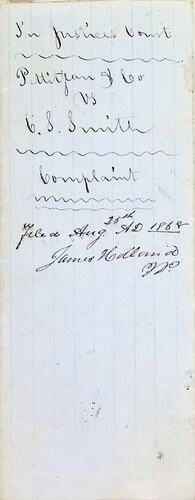 In Justices Court
P. Wirgan & Co
vs
C. S. Smith
Complaint
Filed Aug 25th AD 1868
James Holland
J.P.